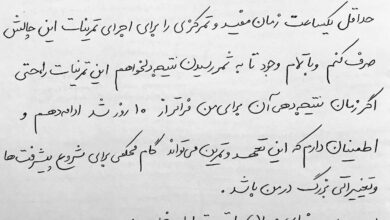 حداقل یکساعت زمان مفید و تمرکزی را برای اجرای تمرینات این چالش
صرف کنم و با تمام وجود تا به ثمر رسیدن نتیجه دلخواهم این تمرینات را حتی
اگر زمان نتیجه‌دهی آن برای من فراتر از ۱۰ روز شد ادامه دهم و
اطمینان دارم که این تعهد و تمرین می‌تواند گام محکمی برای شروع پیشرفت‌ها
و تغییراتی بزرگ در من باشد .